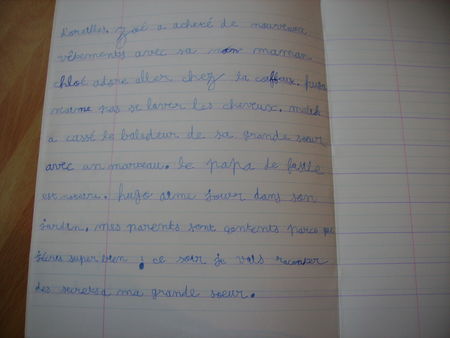 Zoé a acheté de nouveaux
vêtements avec sa maman
chloé adore aller chez la
pas se laver les cheveux.
a cassé le baladeur de sa grande sœur
avec un marteau. le papa de
est notaire. hugo aime jouer dans son
jardin. mes parents sont contents parce que
super bien ; ce soir je vais raconter
des secrets a ma grande soeur.